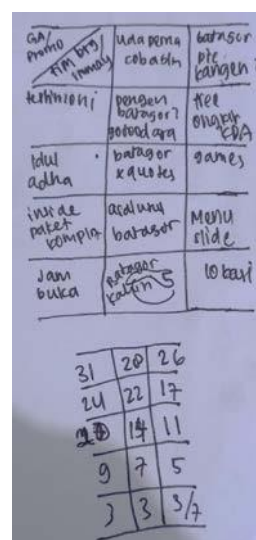 GA/ promo
udapema
cobatin
batagor
pie
kangen?
testimoni
pengen
batagor?
gofood ara
free
ongkir
Idul
adha
batagor
x quotes
games
inside
paket
komplit
asal usul
batagor
Menu
slide
Jam
buka
Batagor
lokasi
31 28 26
24 22 17
14 11
9 7 5
3 3 3/7